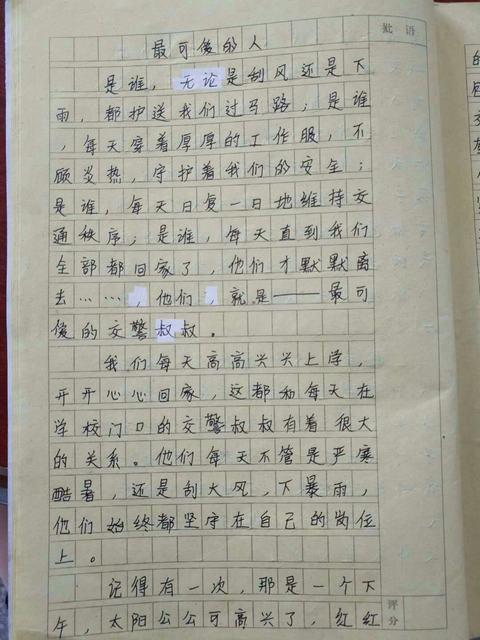 批语
最可俊的人
是谁，无论是刮风还是下
雨，都护送我们过马路；是谁
，每天穿着厚厚的工作服，不
顾炎热，守护着我们的安全；
是谁，每天日复一日地维持交
通秩序；是谁，每天直到我们
全部都回家了，他们才默默离
去……，他们，就是——最可
俊的交警叔叔。
我们每天高高兴兴上学，
开开心心回家，这都和每天在
学校门口的交警叔叔有着很大
的关系。他们每天不管是严寒
酷暑，还是刮大风，下暴雨，
他们始终都坚守在自己的岗位
上。
记得有一次，那是一个下
午，太阳公公可高兴了，红红
评分